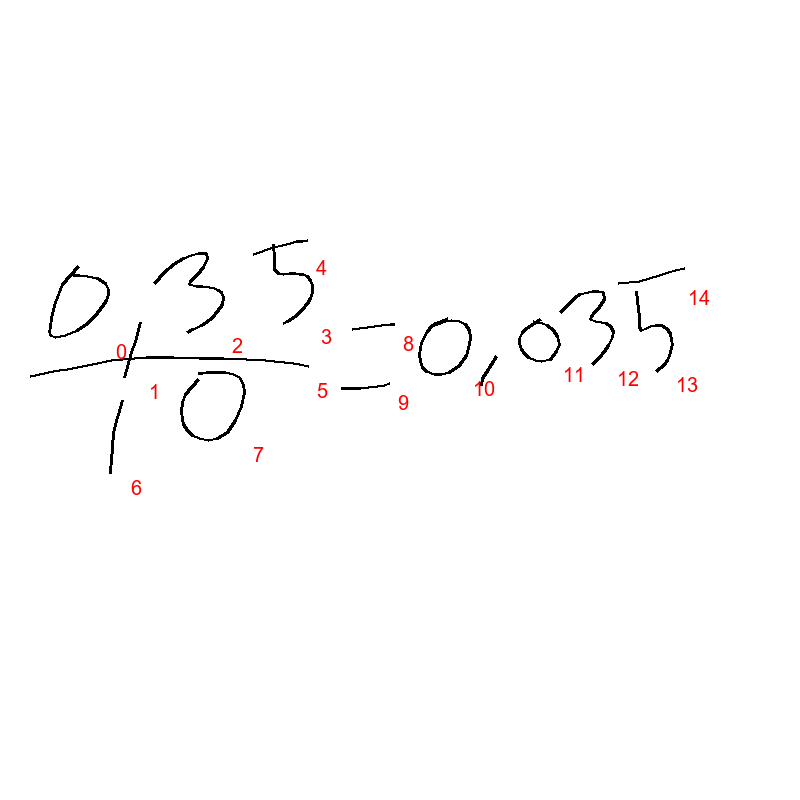 0,35
10
= 0,035
0
1
2
3
4
5
6
7
8
9
10
11
12
13
14